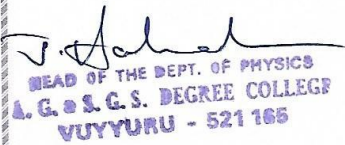 HEAD OF THE DEPT. OF PHYSICS
A. G. & S. G. S. DEGREE COLLEGE
VUYYURU - 521 165